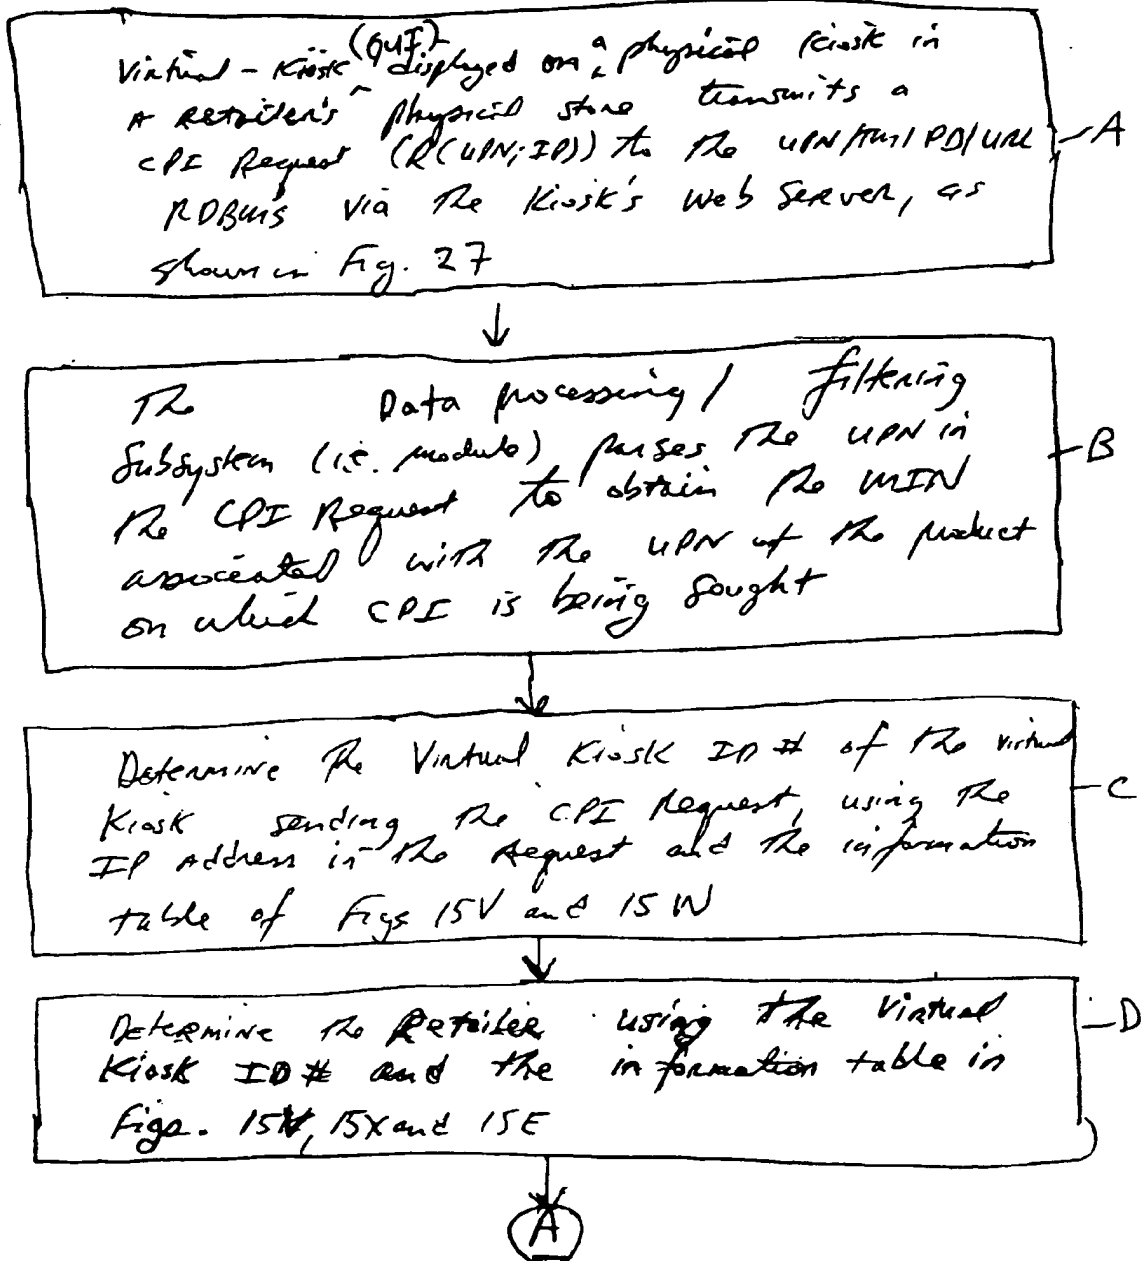 (GUI)
Virtual-Kiosk ^ displayed on ^ a physical Kiosk in
A Retailer's physical store transmits a
CPI Request (R(UPN; IP)) to the UPN/TM/PD/URL
RDBMS via the Kiosk's Web Server, as
shown in Fig. 27
A
The Data processing/ filtering
Subsystem (i.e. module) parses the UPN in
the CPI Request to obtain the MIN
associated with the UPN of the product
on which CPI is being sought
B
Determine the Virtual Kiosk ID # of the virtual
Kiosk sending the CPI Request, using the
IP Address in the Request and the information
table of Figs 15V and 15W
C
Determine the Retailer using the Virtual
Kiosk ID # and the information table in
Figs. 15W, 15X and 15E
D
A